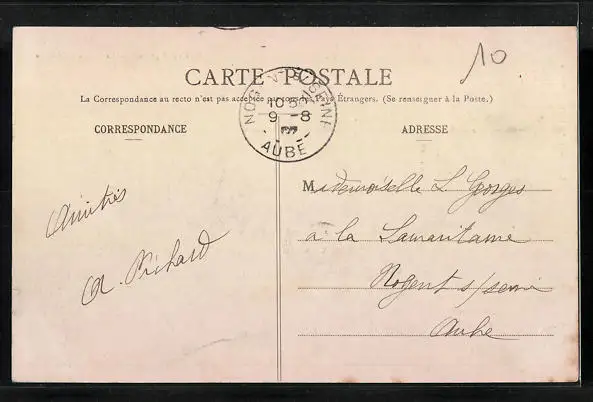 10
CARTE POSTALE
La Correspondance au recto n'est pas acceptée par tous les Pays Étrangers. (Se renseigner à la Poste.)
NOGENT-S-SEINE
9 -8
AUBE
CORRESPONDANCE
ADRESSE
Amitiés
A. Richard
Mademoiselle L. Georges
a la Samaritaine
Nogent s/seine
Aube